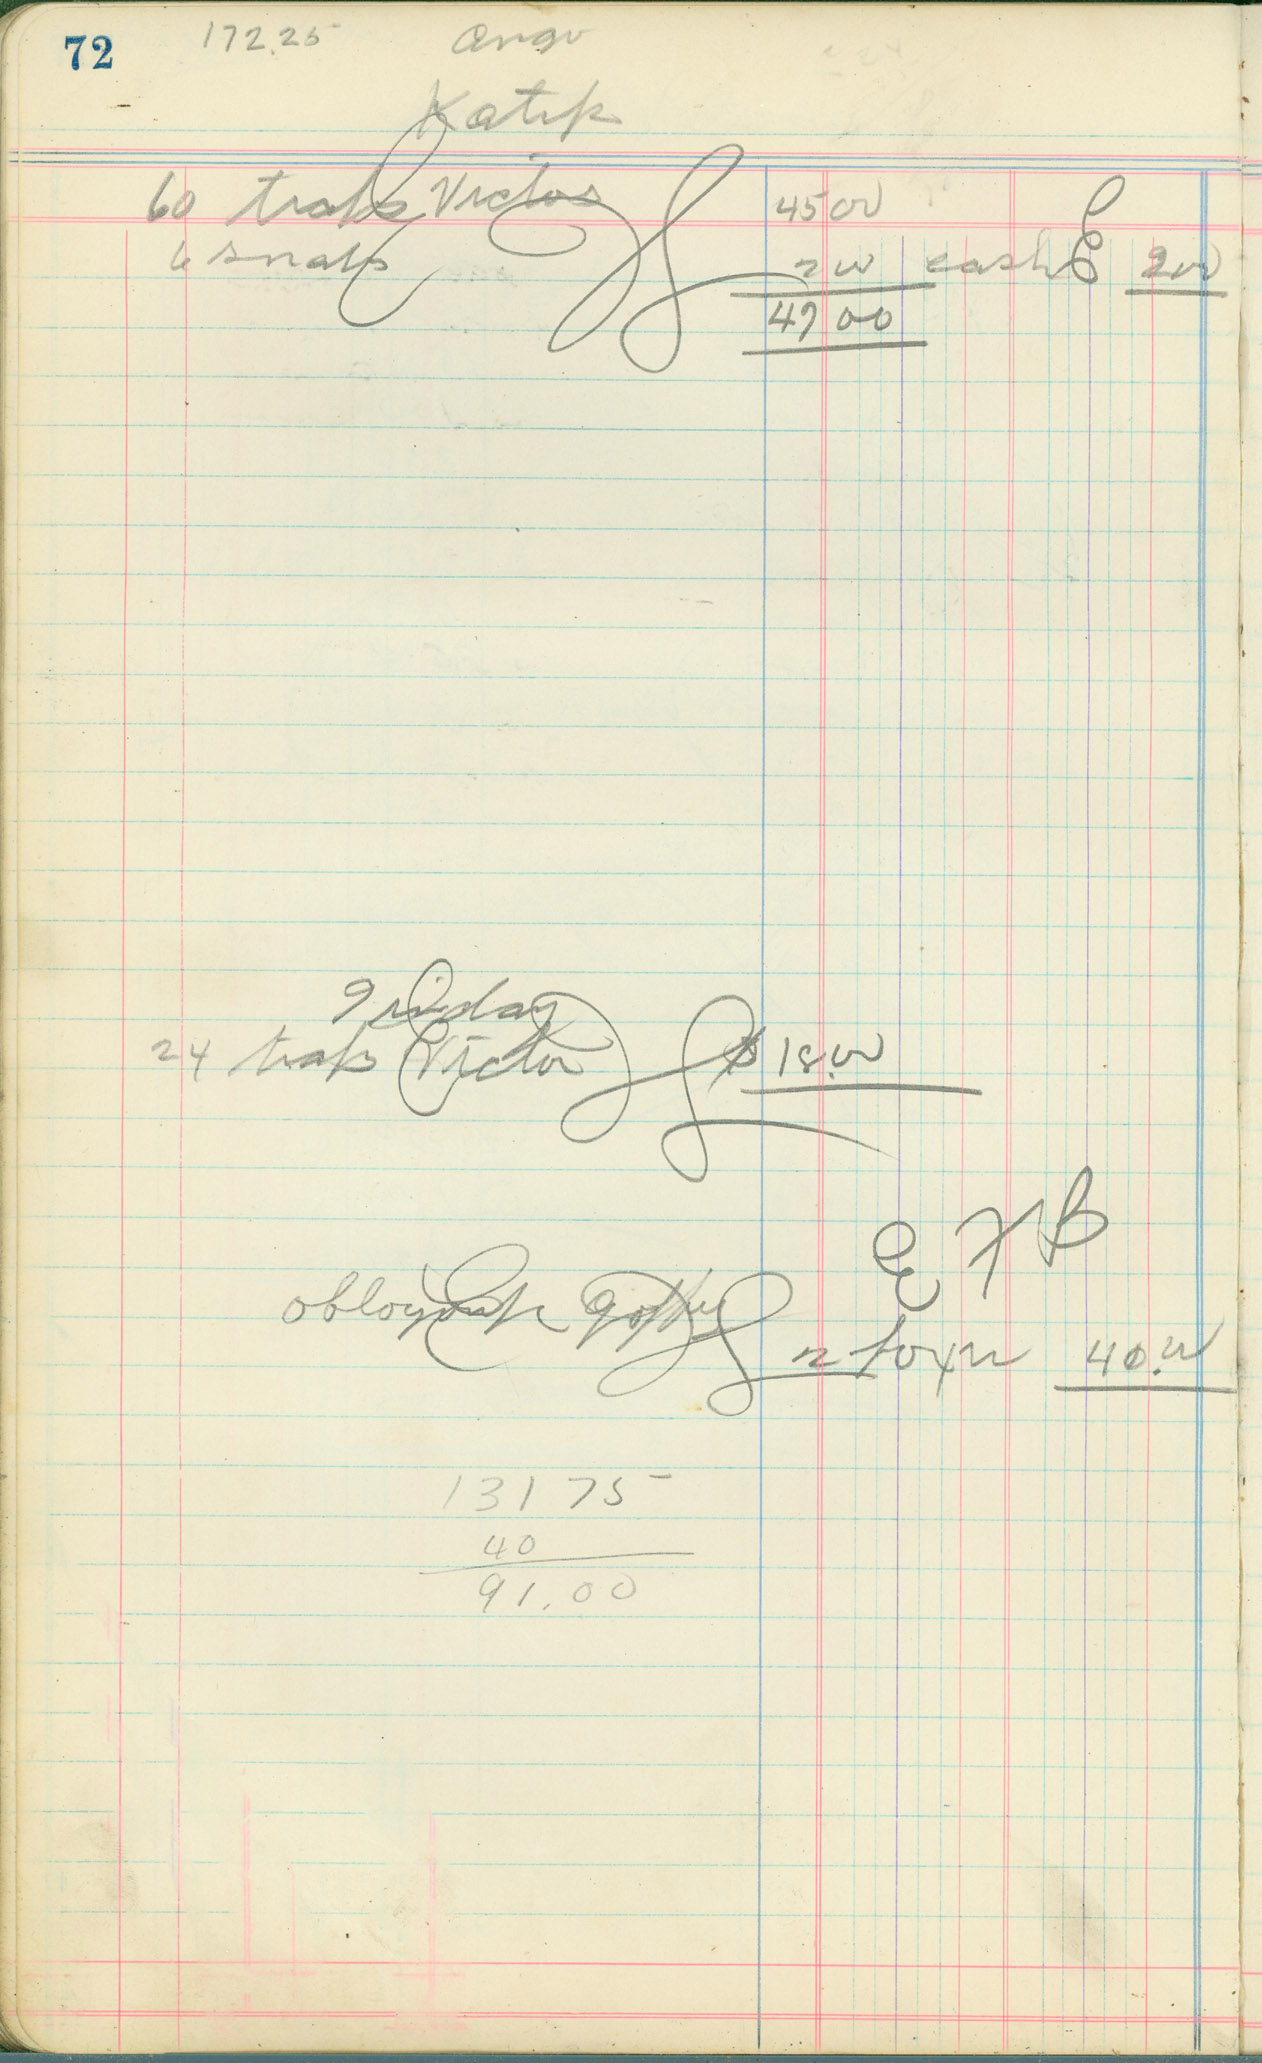 72 172.25 Ongo
Katik
60 traps Victor 45 00
6 snaps 2 00 cash 2 00
47 00
Friday
24 traps Victor $ 18.00
E F B
2 foxes 40.00
131 75
40
91.00